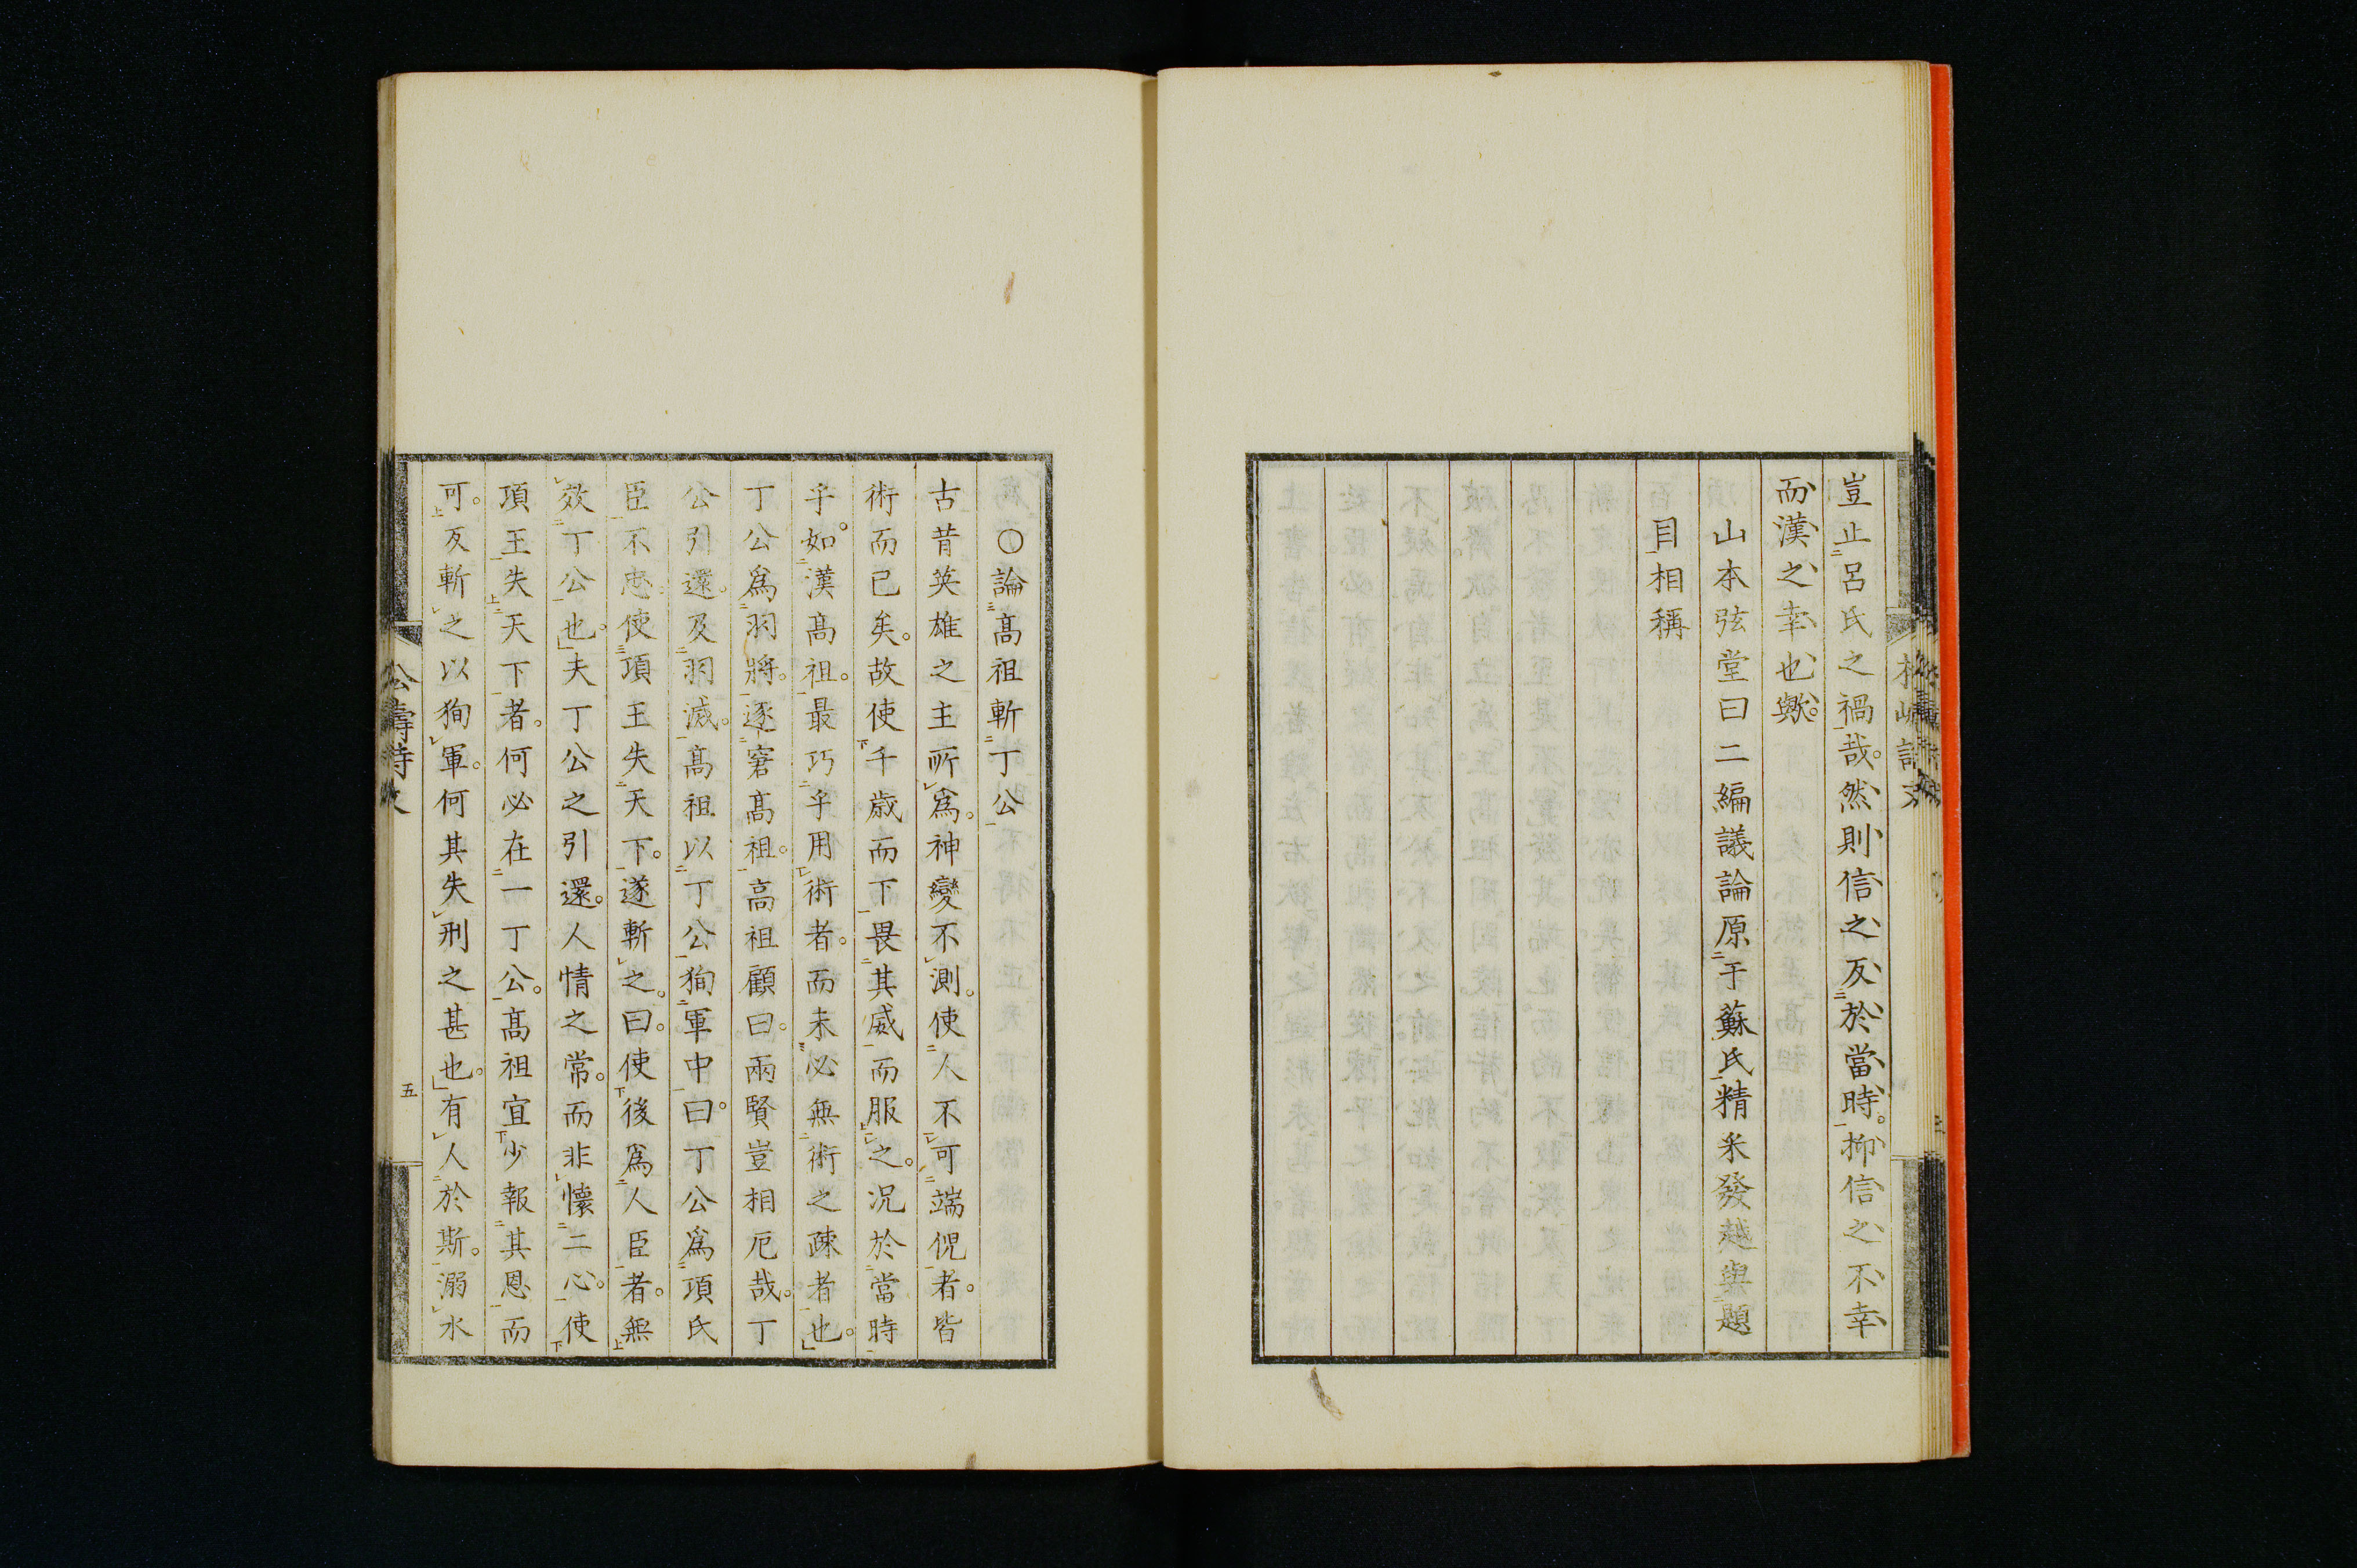 豈止呂氏之禍哉。然則信之反於當時。抑信之不幸
而漢之幸也歟。
山本弦堂曰二編議論原于蘇氏精釆發越與題
目相稱
○論高祖斬丁公
古昔英雄之主所爲。神變不測。使人不可端倪者。皆
術而已矣。故使千歳而下畏其威而服之。況於當時
乎。如漢高祖。最巧乎用術者。而未必無術之疎者也。
丁公爲羽將。逐窘高祖。高祖顧曰。兩賢豈相厄哉。丁
公引還。及羽滅。高祖以丁公狥軍中曰。丁公爲項氏
臣不忠。使項王失天下。遂斬之。曰。使後爲人臣者。無
效丁公也。夫丁公之引還。人情之常。而非懷二心。使
項王失天下者。何必在一丁公。高祖宜少報其恩而
可。反斬之以狥軍。何其失刑之甚也。有人於斯。溺水
五